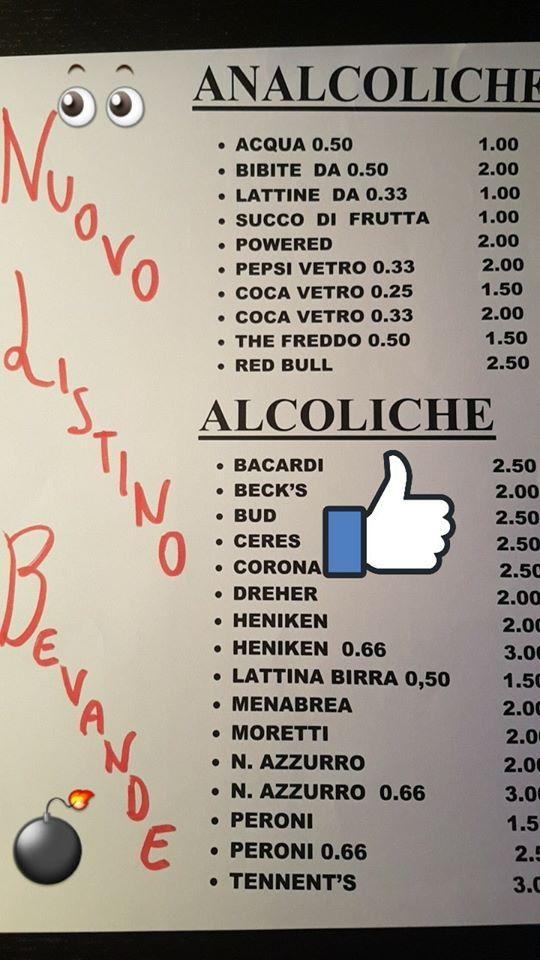 Nuovo
Listino
Bevande
ANALCOLICHE
• ACQUA 0.50 1.00
• BIBITE DA 0.50 2.00
• LATTINE DA 0.33 1.00
• SUCCO DI FRUTTA 1.00
• POWERED 2.00
• PEPSI VETRO 0.33 2.00
• COCA VETRO 0.25 1.50
• COCA VETRO 0.33 2.00
• THE FREDDO 0.50 1.50
• RED BULL 2.50
ALCOLICHE
• BACARDI 2.50
• BECK'S 2.00
• BUD 2.50
• CERES 2.50
• CORONA 2.50
• DREHER 2.00
• HENIKEN 2.00
• HENIKEN 0.66 3.00
• LATTINA BIRRA 0,50 1.50
• MENABREA 2.00
• MORETTI 2.0
• N. AZZURRO 2.00
• N. AZZURRO 0.66 3.00
• PERONI 1.5
• PERONI 0.66 2.5
• TENNENT'S 3.0